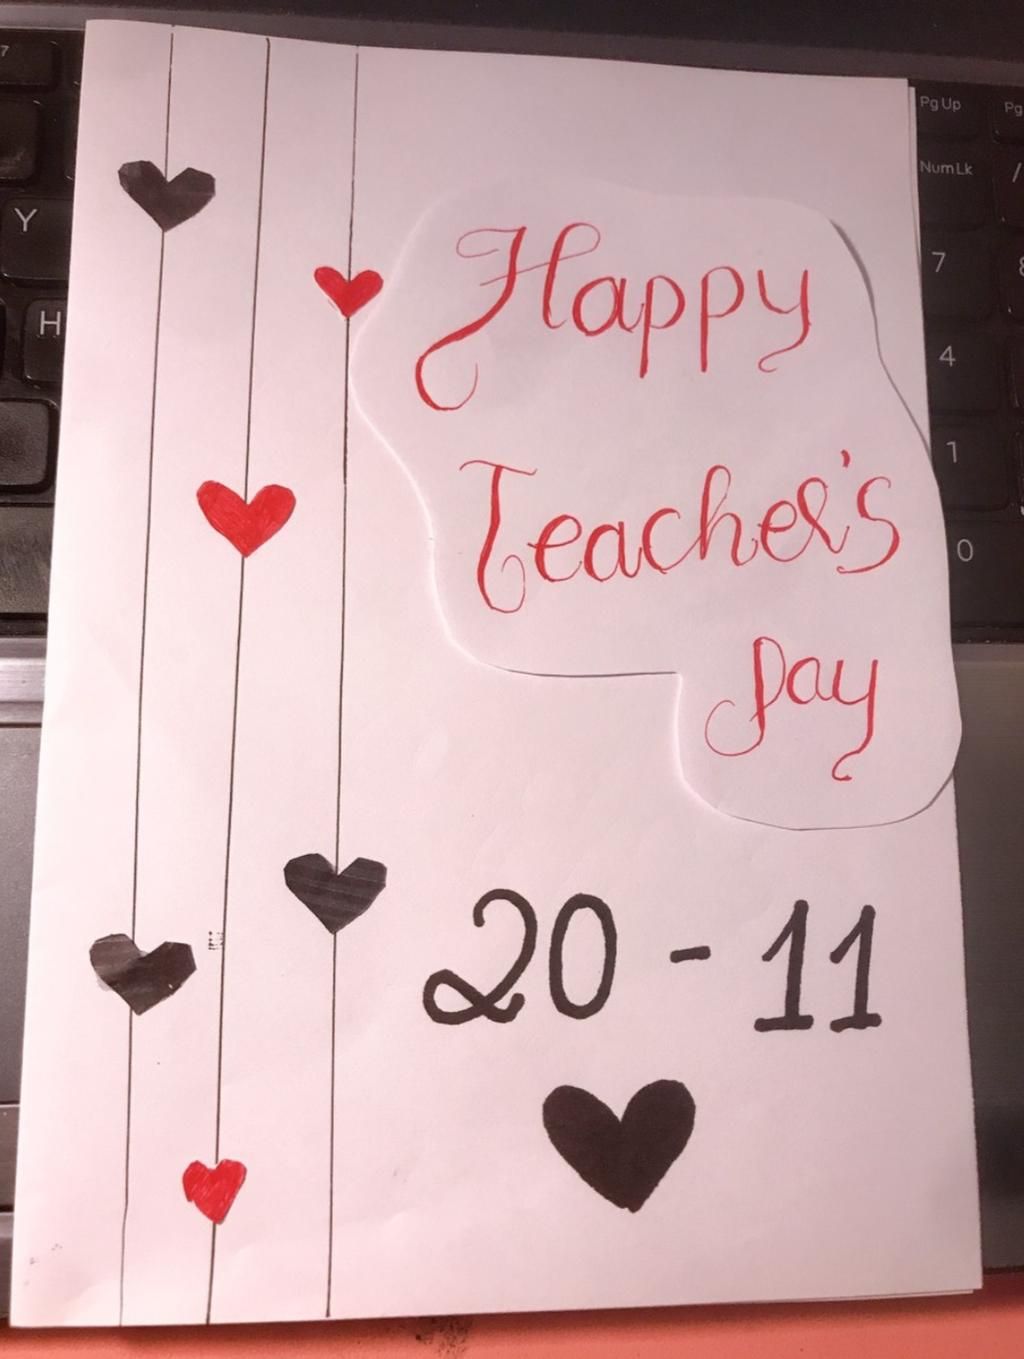 Happy
Teacher's
Day
20-11
7
Y
H
Pg Up
Pg
NumLk
/
7
8
4
1
0